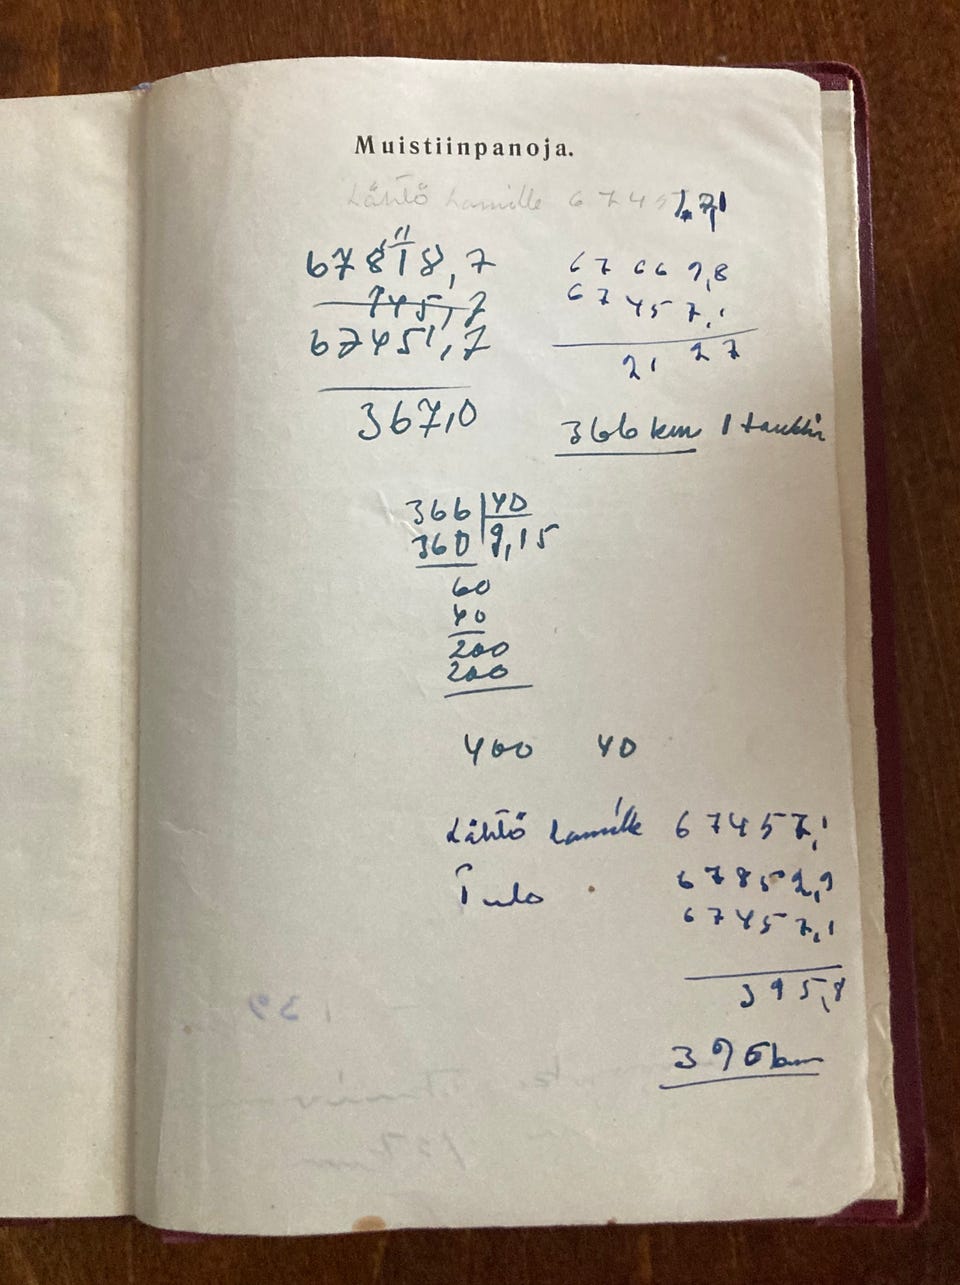 Muistiinpanoja.
Lähtö Lamille 67457,1
67818,7
745,7
67451,7
367,0
67669,8
67457,1
2127
366 km 1 tankki
366 40
360 9,15
60
40
200
200
400 40
Lähtö Lamille 67457,1
Tulo 67852,9
67457,1
395,8
396 km